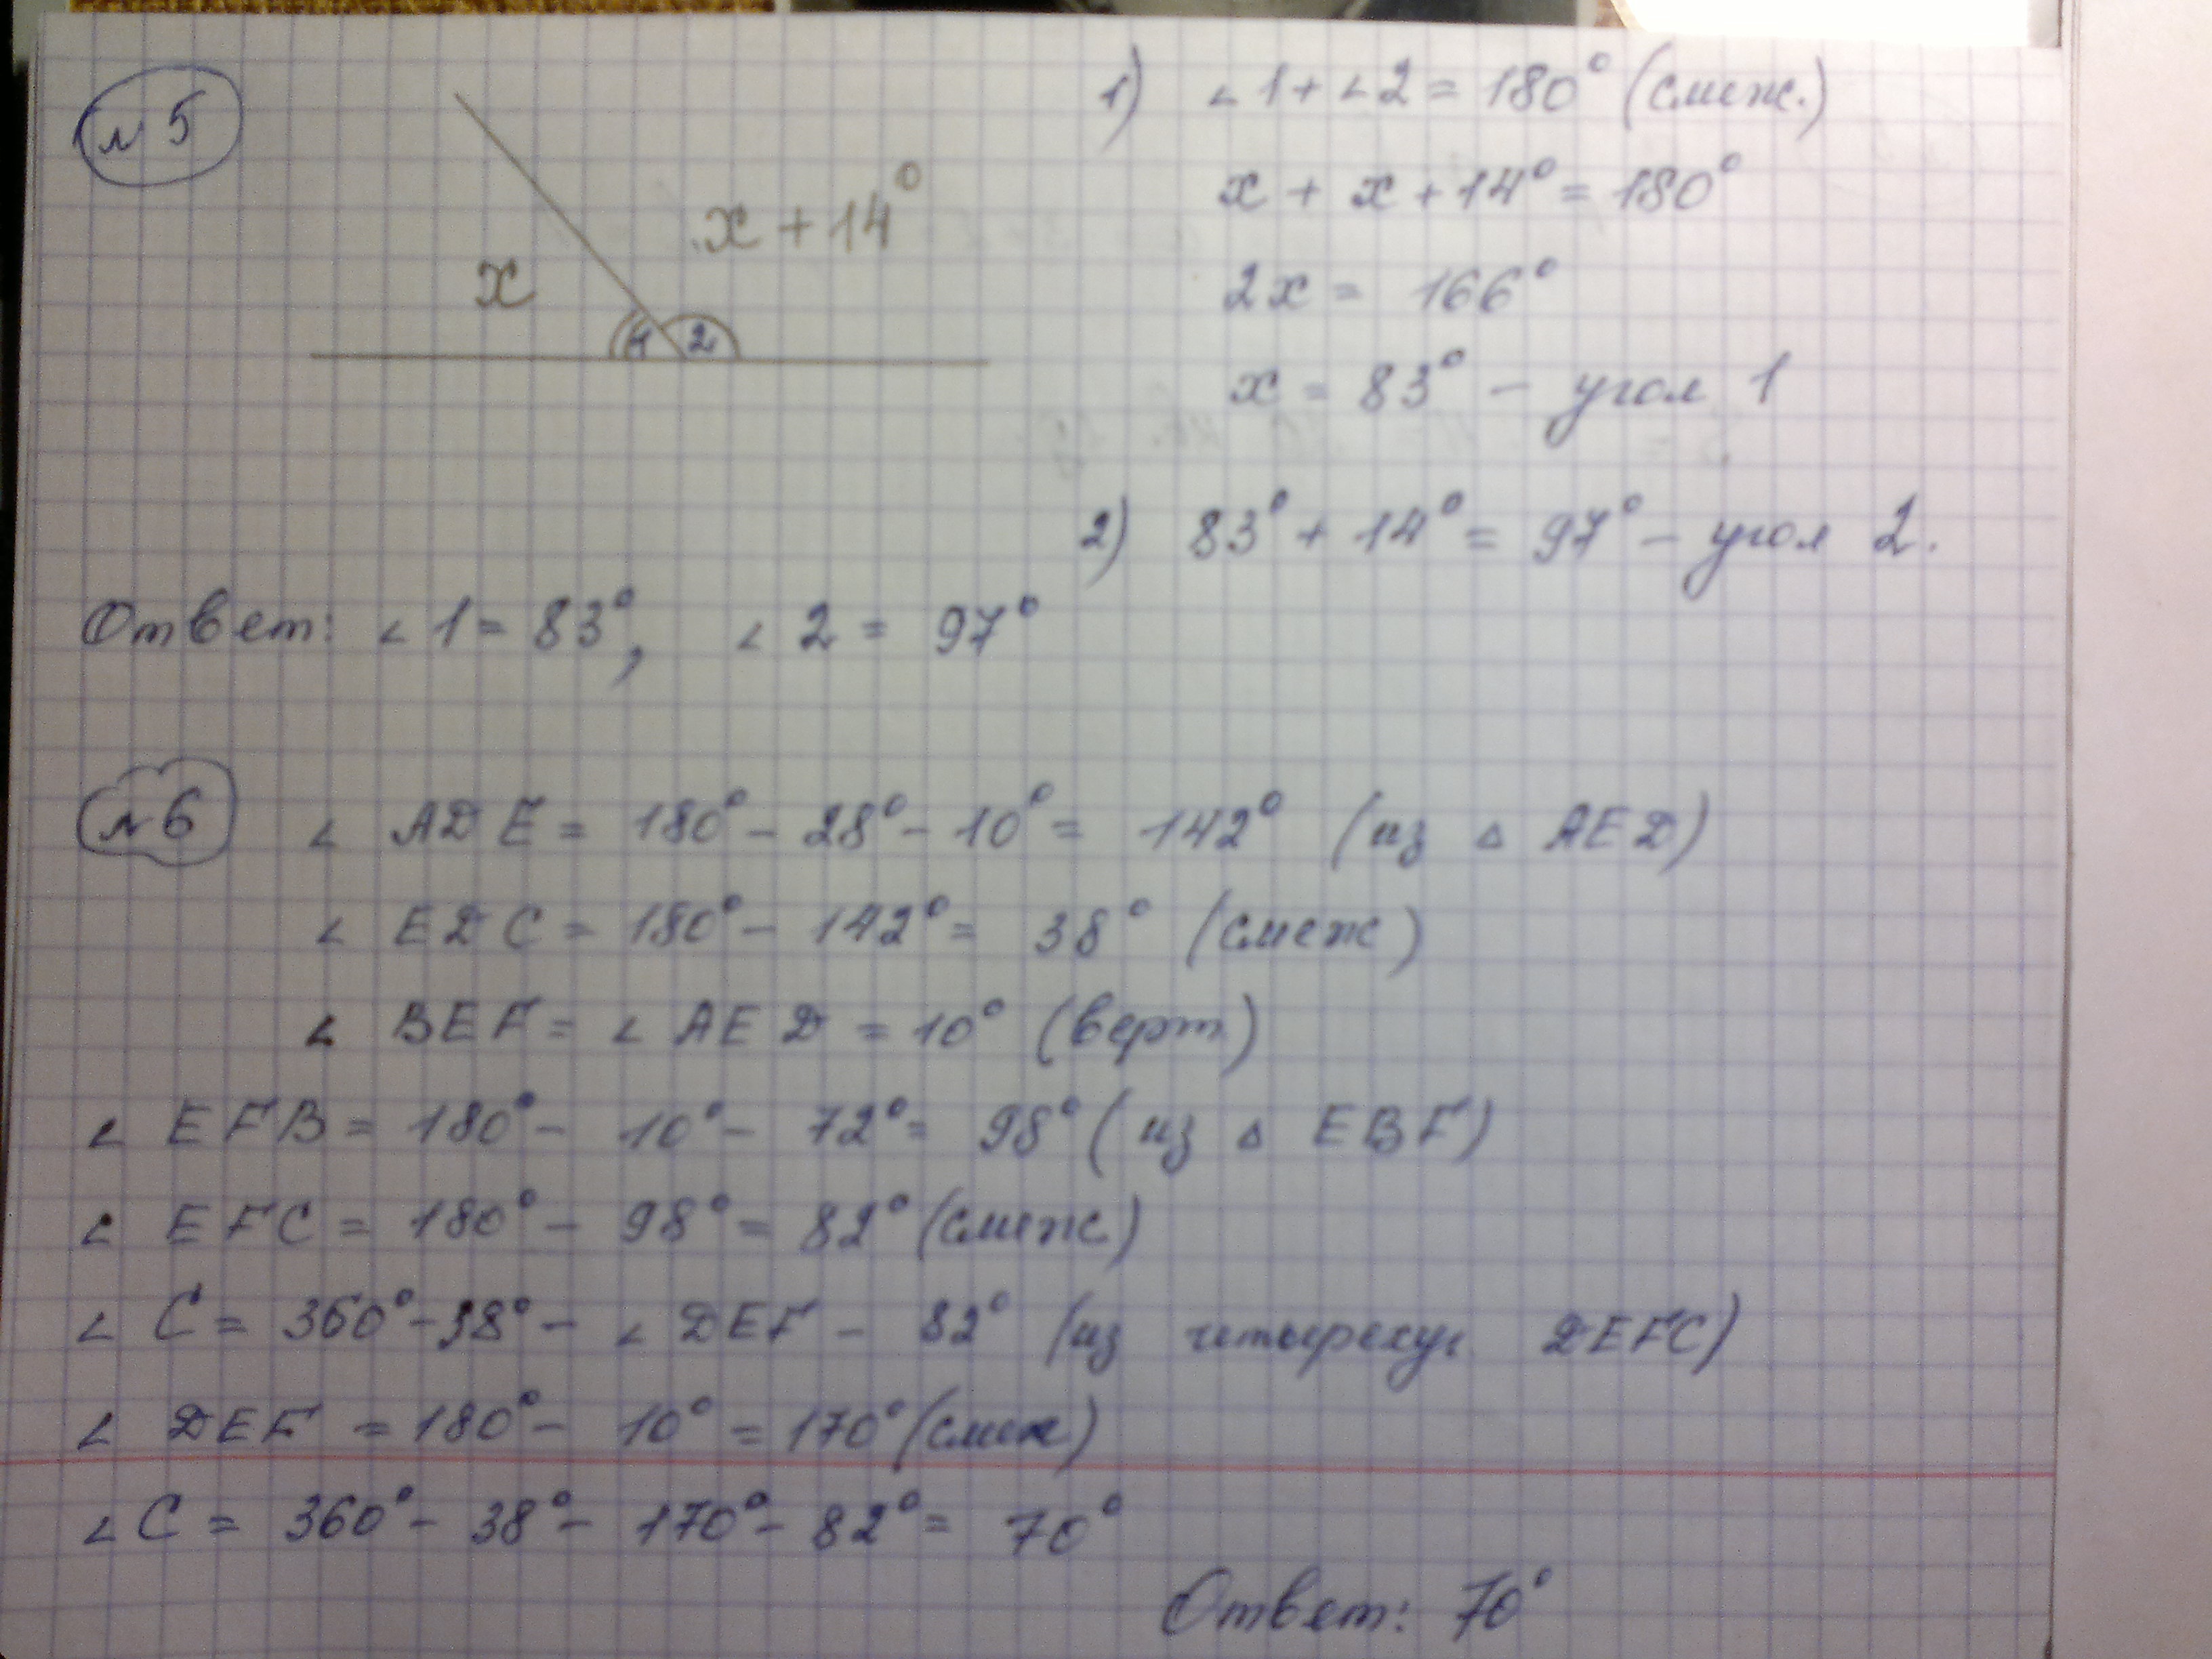 №5
x
x + 14°
1 2
1) ∠1 + ∠2 = 180° (смеж.)
x + x + 14° = 180°
2x = 166°
x = 83° – угол 1
2) 83° + 14° = 97° – угол 2.
Ответ: ∠1 = 83°, ∠2 = 97°
№6 ∠ADE = 180° – 28° – 10° = 142° (из △ AED)
∠EDC = 180° – 142° = 38° (смеж)
∠BEF = ∠AED = 10° (верт)
∠EFB = 180° – 10° – 72° = 98° (из △ EBF)
∠EFC = 180° – 98° = 82° (смеж)
∠C = 360° – 38° – ∠DEF – 82° (из четырехуг DEFC)
∠DEF = 180° – 10° = 170° (смеж)
∠C = 360° – 38° – 170° – 82° = 70°
Ответ: 70°